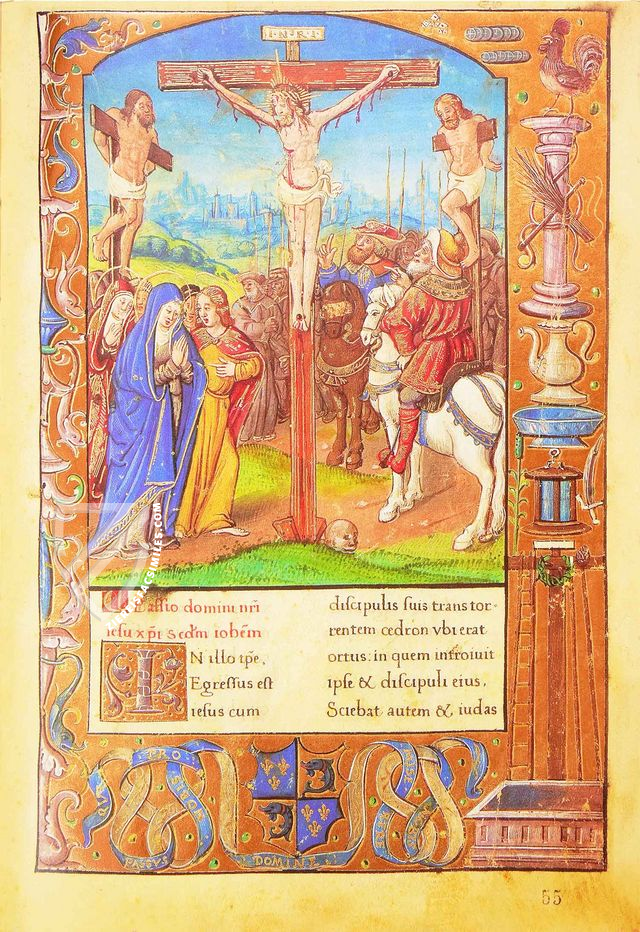 I N R I
Passio domini nr̃i
iesu xp̃i scd̃m iohẽm
IN illo tp̃e,
Egressus est
iesus cum
discipulis suis trans tor-
rentem cedron vbi erat
ortus: in quem introiuit
ipse & discipuli eius,
Sciebat autem & iudas
PRO
DOMINI
55